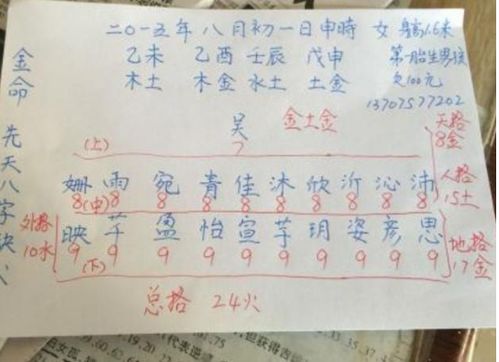 二〇一五年八月初一日申時 女 身高1.6米
乙未 乙酉 壬辰 戊申 第一胎生男孩
木土 木金 水土 土金 欠100元
13707577202
金命 先天八字缺火
吴 金土金
(上) 7
天格
8金
姗 雨 宛 青 佳 沐 欣 沂 沁 沛
8 (中) 8 8 8 8 8 8 8 8 8
人格
15土
外格
10水
映 芊 盈 怡 宣 芋 玥 姿 彦 思
9 9 9 9 9 9 9 9 9 9
(下)
地格
17金
总格 24火